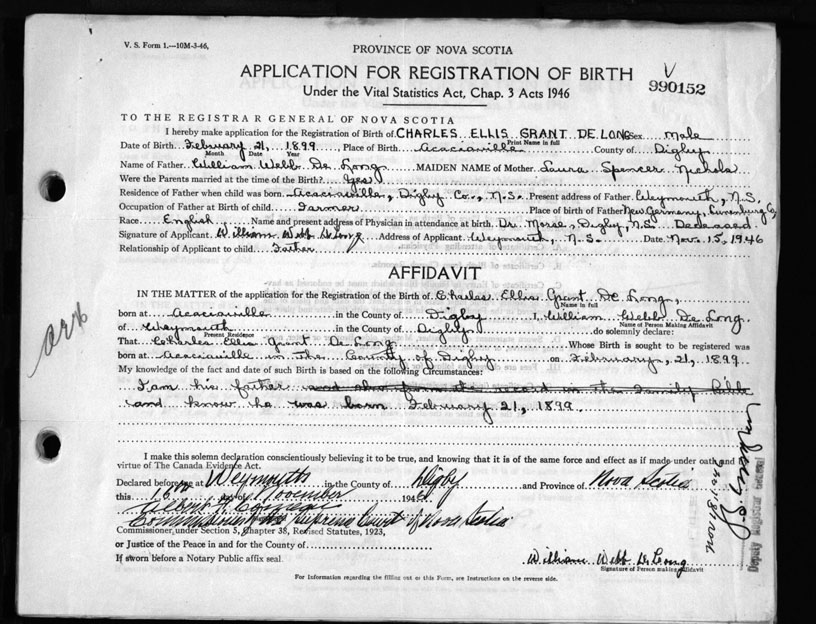 V. S. Form 1.—10M-3-46.
PROVINCE OF NOVA SCOTIA
APPLICATION FOR REGISTRATION OF BIRTH
V
990152
Under the Vital Statistics Act, Chap. 3 Acts 1946
TO THE REGISTRAR GENERAL OF NOVA SCOTIA
I hereby make application for the Registration of Birth of CHARLES ELLIS GRANT DE LONG Sex Male
Print Name in full
Date of Birth February 21, 1899 Place of Birth Acaciaville County of Digby
Month Date Year
Name of Father William Webb De Long MAIDEN NAME of Mother Laura Spencer Nichols
Were the Parents married at time of the Birth? Yes
Residence of Father when child was born Acaciaville, Digby Co., N.S. Present address of Father Weymouth, N.S.
Occupation of Father at Birth of child Farmer Place of birth of Father New Germany, Lunenburg Co.
Race English Name and present address of Physician in attendance at birth Dr. Morse, Digby, N.S. Deceased.
Signature of Applicant William Webb DeLong Address of Applicant Weymouth, N.S. Date Nov. 15, 1946
Relationship of Applicant to child Father
AFFIDAVIT
IN THE MATTER of the application for the Registration of the Birth of Charles Ellis Grant De Long,
Name in full
born at Acaciaville in the County of Digby I, William Webb De Long
Name of Person Making Affidavit
of Weymouth in the County of Digby do solemnly declare:
Present Residence
That Charles Ellis Grant De Long Whose Birth is sought to be registered was
born at Acaciaville in the County of Digby on February, 21, 1899.
My knowledge of the fact and date of such Birth is based on the following Circumstances:
I am his father and also from the record in the family Bible
and know he was born February 21, 1899.
I make this solemn declaration conscientiously believing it to be true, and knowing that it is of the same force and effect as if made under oath and by
virtue of The Canada Evidence Act.
Declared before me at Weymouth in the County of Digby and Province of Nova Scotia
this 16th day of November 194
Commissioner Supreme Court of Nova Scotia
Commissioner under Section 5, Chapter 38, Revised Statutes, 1923,
or Justice of the Peace in and for the County of
If sworn before a Notary Public affix seal.
William Webb DeLong
Signature of Person making Affidavit
For Information regarding the filling out of this Form, see Instructions on the reverse side.
Deputy Registrar General